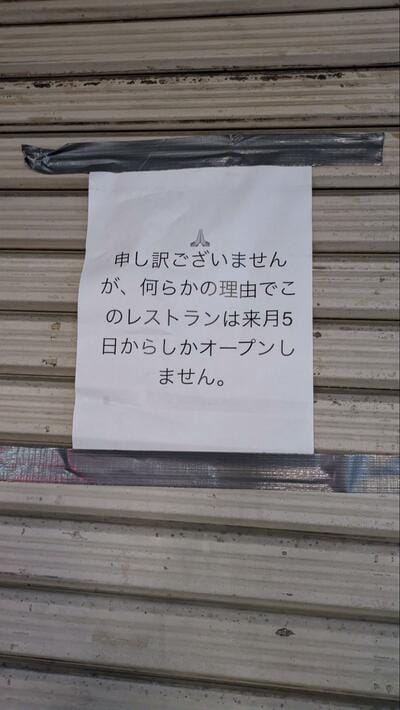 🙏
申し訳ございません
が、何らかの理由でこ
のレストランは来月5
日からしかオープンし
ません。